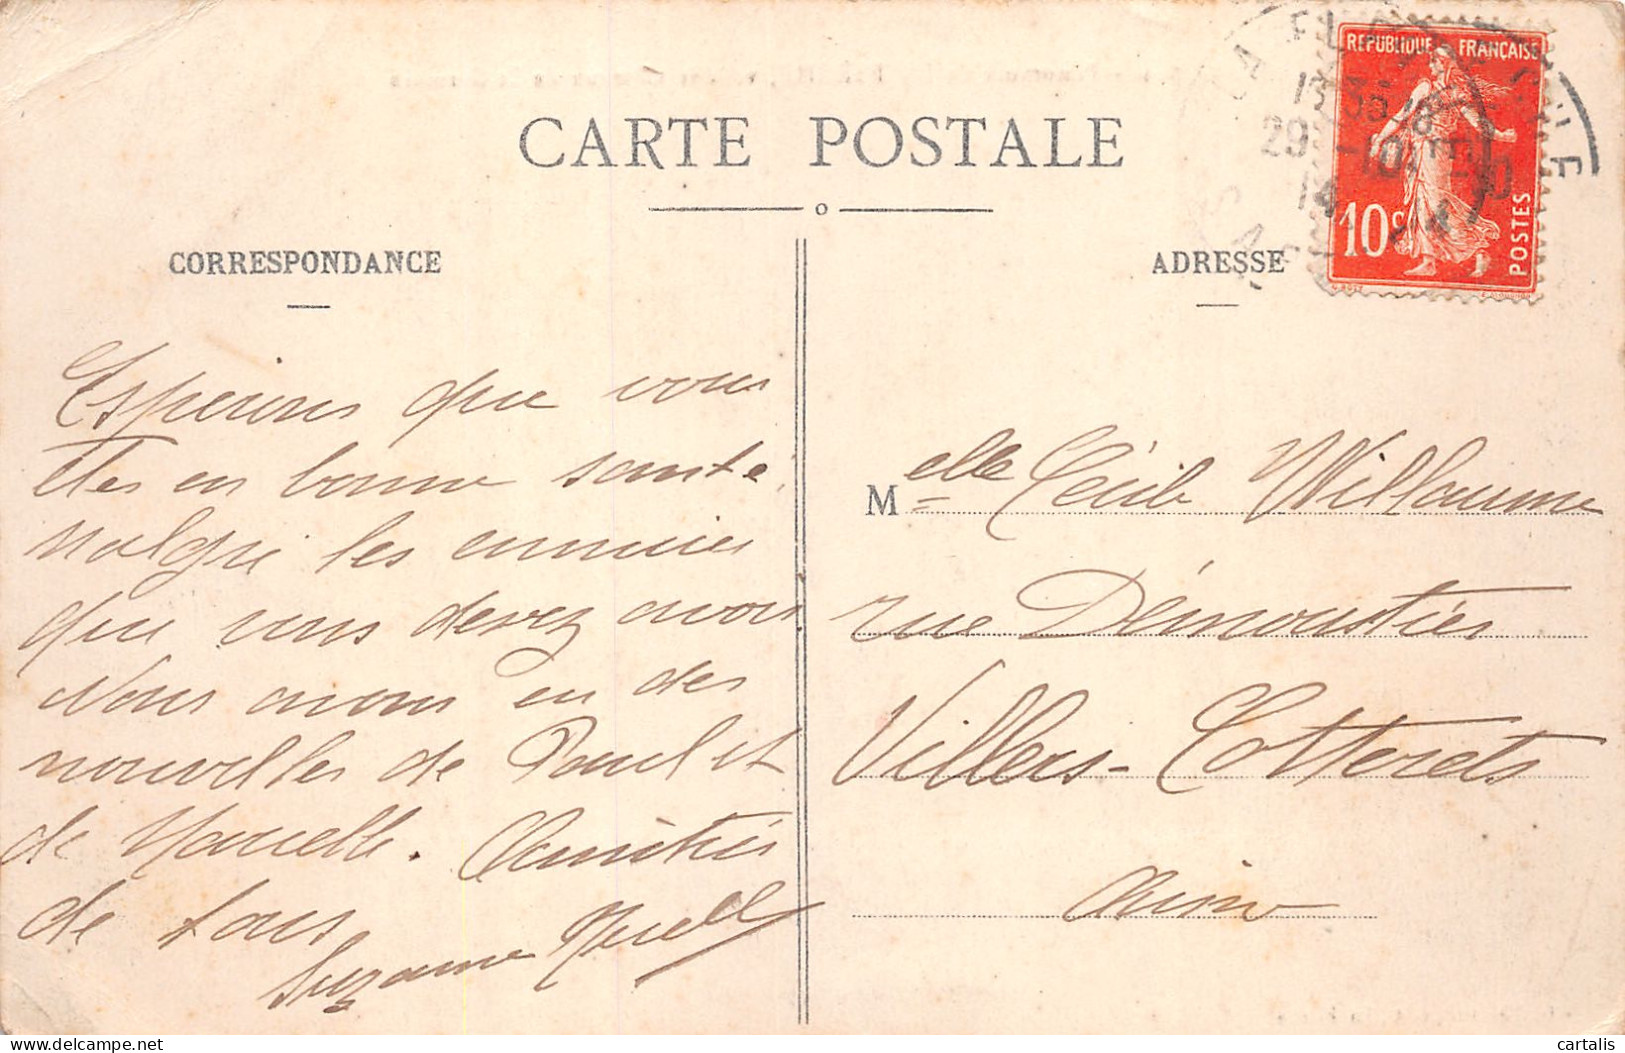 CARTE POSTALE
CORRESPONDANCE
ADRESSE
RÉPUBLIQUE FRANÇAISE
10c
POSTES
LA FLÈCHE
13 35
29 -10
14
SARTHE
Esperons que vous
êtes en bonne santé
malgré les ennuies
que vous devez avoir.
Nous avons eu des
nouvelles de Paul et
de Marcelle. Amitiés
de tous
Suzanne
Melle Cécile Willaume
rue Démoustier
Villers-Cotterets
Aisne
delcampe.net
cartalis